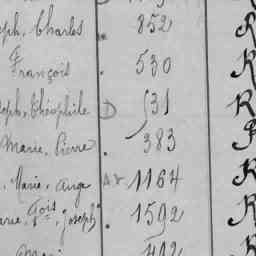 eph, Charles 852 R
François 530 K
oseph, Théophile D 531 R
Marie, Pierre 383
, Marie, Ange 1164 K
arie, Fois, Joseph 1592 K
Marie 412 K